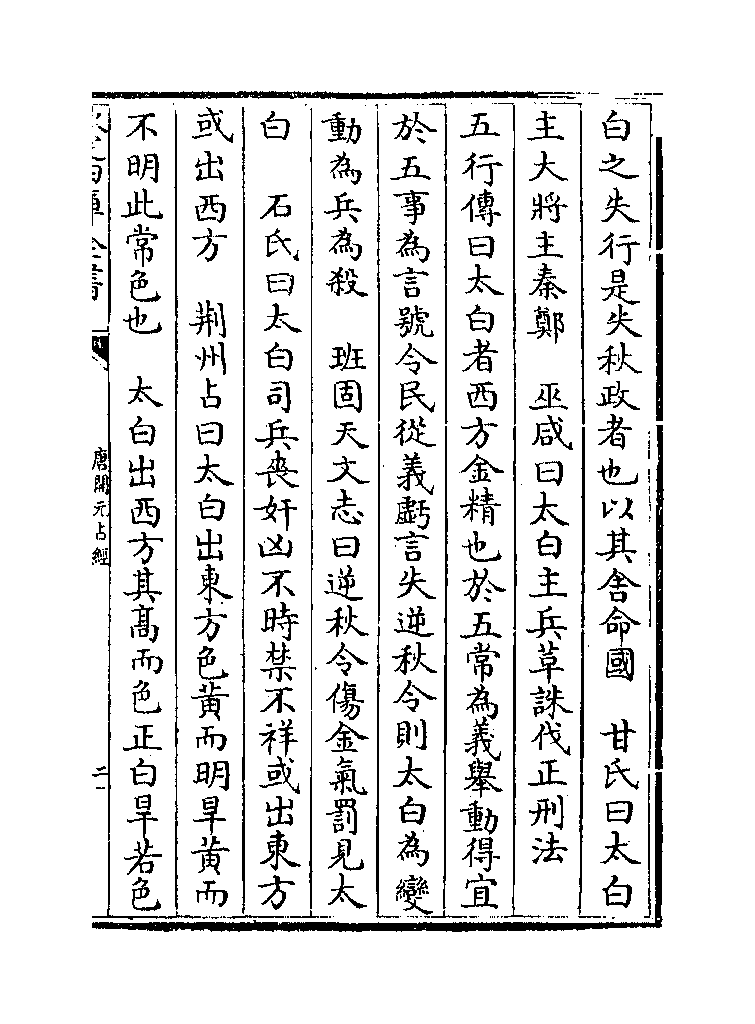 白之失行是失秋政者也以其舍命國　甘氏曰太白
主大將主秦鄭　巫咸曰太白主兵草誅伐正刑法
五行傳曰太白者西方金精也於五常為義舉動得宜
於五事為言號令民從義虧言失逆秋令則太白為變
動為兵為殺　班固天文志曰逆秋令傷金氣罰見太
白　石氏曰太白司兵喪奸凶不時禁不祥或出東方
或出西方　荆州占曰太白出東方色黄而明旱黄而
不明此常色也　太白出西方其髙而色正白旱若色
全書
唐開元占經
二